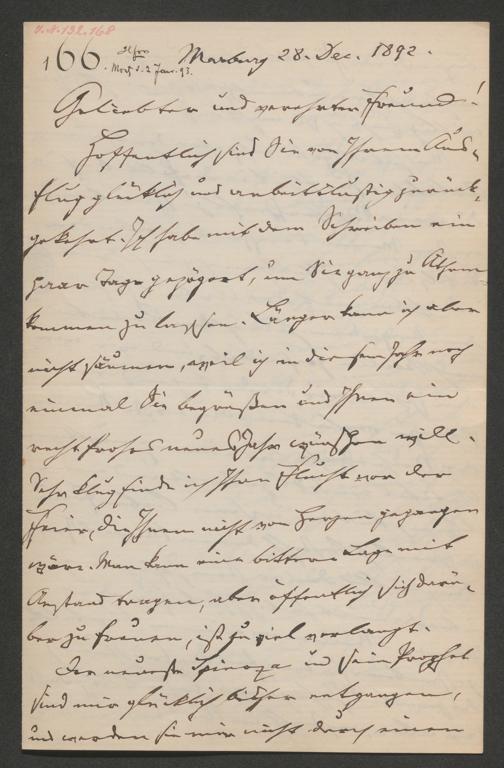 U.N. 132.168
166.
Marburg 28. Dec. 1892.
Geliebter und verehrter Freund!
Hoffentlich sind Sie von Ihrem Aus-
flug glücklich und arbeitslustig zurück-
gekehrt. Ich habe mit dem Schreiben ein
paar Tage gezögert, um Sie ganz zu Athem
kommen zu lassen. Länger kann ich aber
nicht säumen, weil ich in diesem Jahr noch
einmal Sie begrüßen und Ihnen ein
recht frohes neues Jahr wünschen will.
Sehr klug finde ich Ihre Flucht vor der
Feier, die Ihnen nicht von Herzen gegangen
wäre. Man kann eine bittere Lage mit
Anstand tragen, aber öffentlich sich darü-
ber zu freuen, ist zu viel verlangt.
Der neueste Spinoza und sein Prophet
sind mir glücklich bisher entgangen,
und werden sie mir nicht durch einen